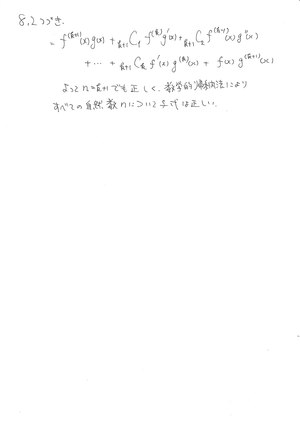 8.2 つづき.
= f^{(k+1)}(x)g(x) + _{k+1}C_1 f^{(k)}g'(x) + _{k+1}C_2 f^{(k-1)}(x)g''(x)
+ ⋯ + _{k+1}C_k f'(x)g^{(k)}(x) + f(x)g^{(k+1)}(x)
よって n=k+1 でも正しく、数学的帰納法により
すべての自然数 n について与式は正しい.